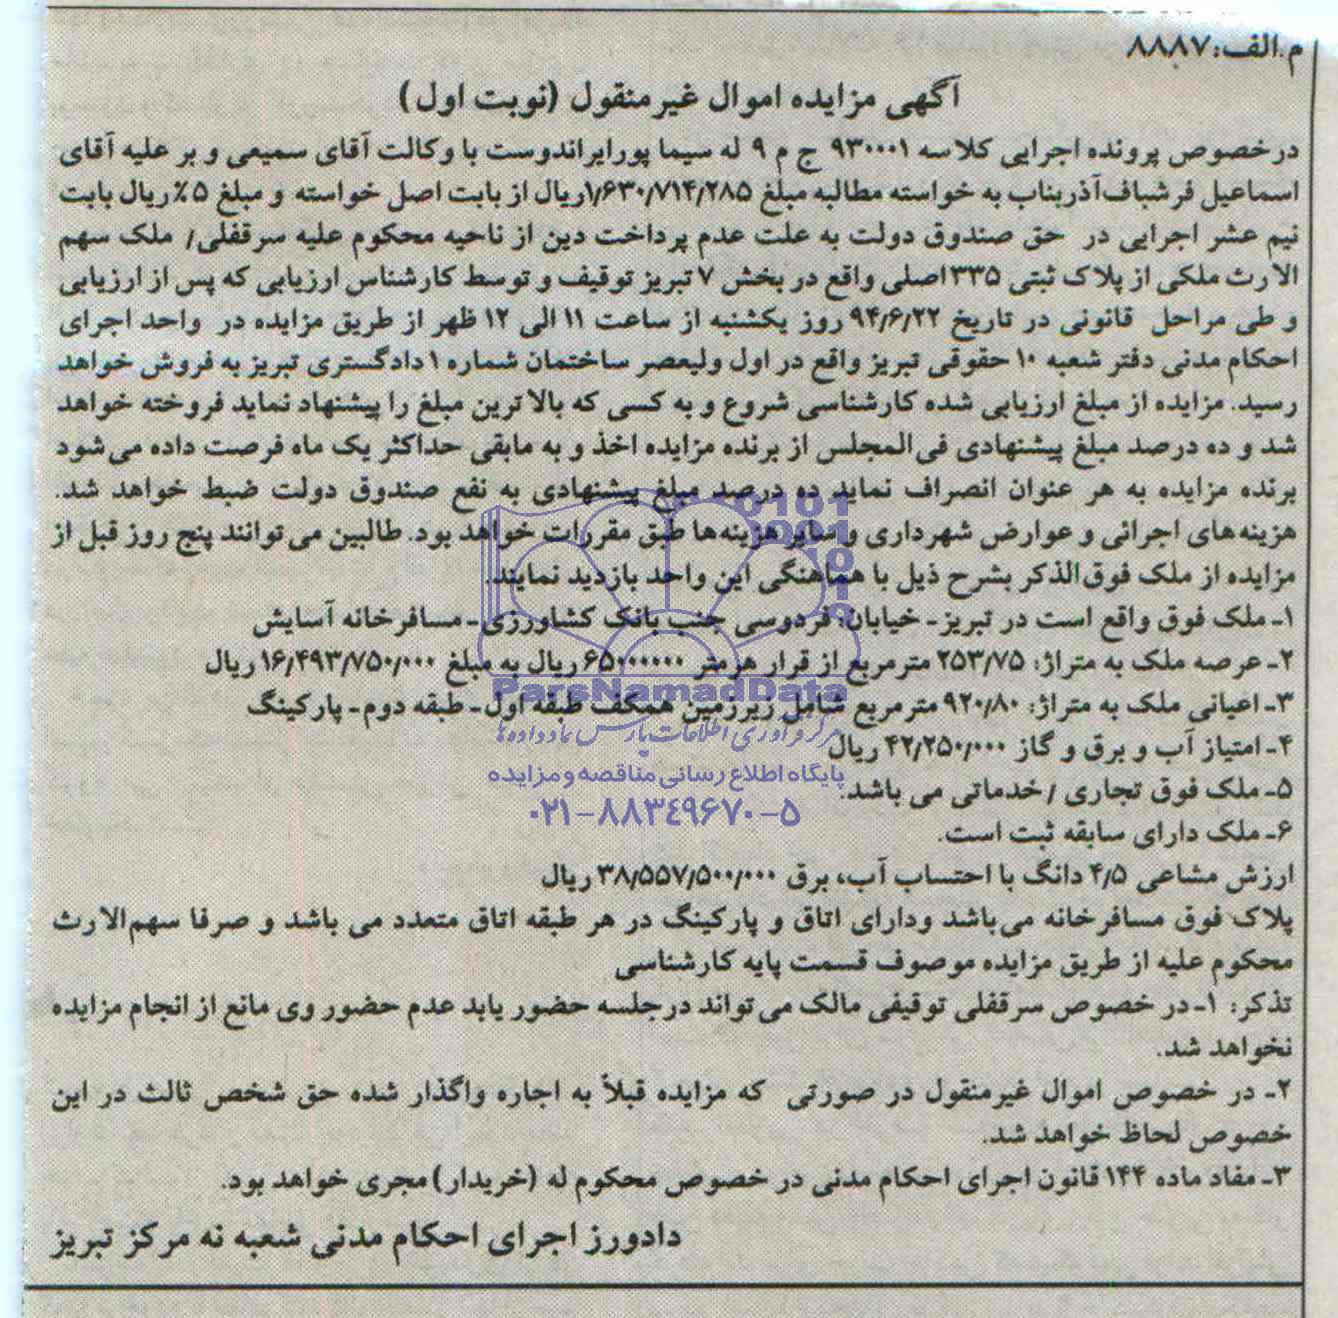 م.الف: ۸۸۸۷
آگهی مزایده اموال غیرمنقول (نوبت اول)
درخصوص پرونده اجرایی کلاسه ۹۳۰۰۰۱ ج م ۹ له سیما پورایراندوست با وکالت آقای سمیعی و بر علیه آقای
اسماعیل فرشباف‌آذربناب به خواسته مطالبه مبلغ ۱/۶۳۰/۷۱۴/۲۸۵ریال از بابت اصل خواسته و مبلغ ۵٪ ریال بابت
نیم عشر اجرایی در حق صندوق دولت به علت عدم پرداخت دین از ناحیه محکوم علیه سرقفلی/ ملک سهم
الارث ملکی از پلاک ثبتی ۳۳۵ اصلی واقع در بخش ۷ تبریز توقیف و توسط کارشناس ارزیابی که پس از ارزیابی
و طی مراحل قانونی در تاریخ ۹۴/۶/۲۲ روز یکشنبه از ساعت ۱۱ الی ۱۲ ظهر از طریق مزایده در واحد اجرای
احکام مدنی دفتر شعبه ۱۰ حقوقی تبریز واقع در اول ولیعصر ساختمان شماره ۱ دادگستری تبریز به فروش خواهد
رسید. مزایده از مبلغ ارزیابی شده کارشناسی شروع و به کسی که بالاترین مبلغ را پیشنهاد نماید فروخته خواهد
شد و ده درصد مبلغ پیشنهادی فی‌المجلس از برنده مزایده اخذ و به مابقی حداکثر یک ماه فرصت داده می‌شود
برنده مزایده به هر عنوان انصراف نماید ده درصد مبلغ پیشنهادی به نفع صندوق دولت ضبط خواهد شد.
هزینه‌های اجرائی و عوارض شهرداری و سایر هزینه‌ها طبق مقررات خواهد بود. طالبین می‌توانند پنج روز قبل از
مزایده از ملک فوق‌الذکر بشرح ذیل با هماهنگی این واحد بازدید نمایند.
۱- ملک فوق واقع است در تبریز- خیابان: فردوسی جنب بانک کشاورزی- مسافرخانه آسایش
۲- عرصه ملک به متراژ: ۲۵۳/۷۵ مترمربع از قرار هر متر ۶۵۰۰۰۰۰۰ ریال به مبلغ ۱۶/۴۹۳/۷۵۰/۰۰۰ ریال
۳- اعیانی ملک به متراژ: ۹۲۰/۸۰ مترمربع شامل زیرزمین همکف طبقه اول- طبقه دوم- پارکینگ
۴- امتیاز آب و برق و گاز ۴۲/۲۵۰/۰۰۰ ریال
۵- ملک فوق تجاری / خدماتی می باشد.
۶- ملک دارای سابقه ثبت است.
ارزش مشاعی ۴/۵ دانگ با احتساب آب، برق ۳۸/۵۵۷/۵۰۰/۰۰۰ ریال
پلاک فوق مسافرخانه می‌باشد ودارای اتاق و پارکینگ در هر طبقه اتاق متعدد می باشد و صرفا سهم‌الارث
محکوم علیه از طریق مزایده موصوف قسمت پایه کارشناسی
تذکر: ۱- در خصوص سرقفلی توقیفی مالک می‌تواند درجلسه حضور یابد عدم حضور وی مانع از انجام مزایده
نخواهد شد.
۲- در خصوص اموال غیرمنقول در صورتی که مزایده قبلاً به اجاره واگذار شده حق شخص ثالث در این
خصوص لحاظ خواهد شد.
۳- مفاد ماده ۱۴۴ قانون اجرای احکام مدنی در خصوص محکوم له (خریدار) مجری خواهد بود.
دادورز اجرای احکام مدنی شعبه نه مرکز تبریز
ParsNamadData
مرکز فرآوری اطلاعات پارس نماد داده‌ها
پایگاه اطلاع رسانی مناقصه و مزایده
۰۲۱-۸۸۳۴۹۶۷۰-۵